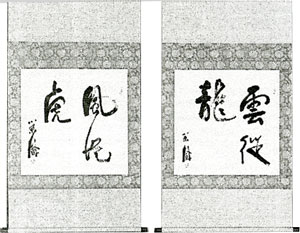 雲從
龍
風從
虎